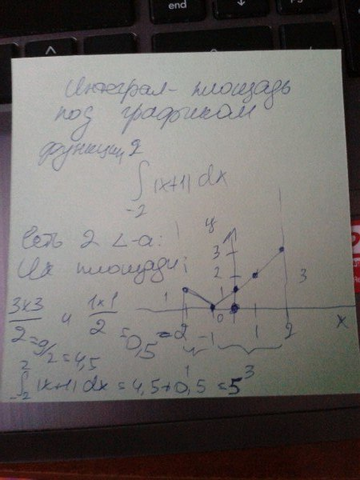 end
Интеграл - площадь
под графиком
функции
2
∫ |x+1| dx
-2
Есть 2 ∠-а:
Их площади:
3x3/2 и 1x1/2
=9/2=4,5 =0,5
2
∫ |x+1| dx = 4,5+0,5 = 5
-2
y
3
2
1
1
3
0
-2 -1 1 2
x
1 3